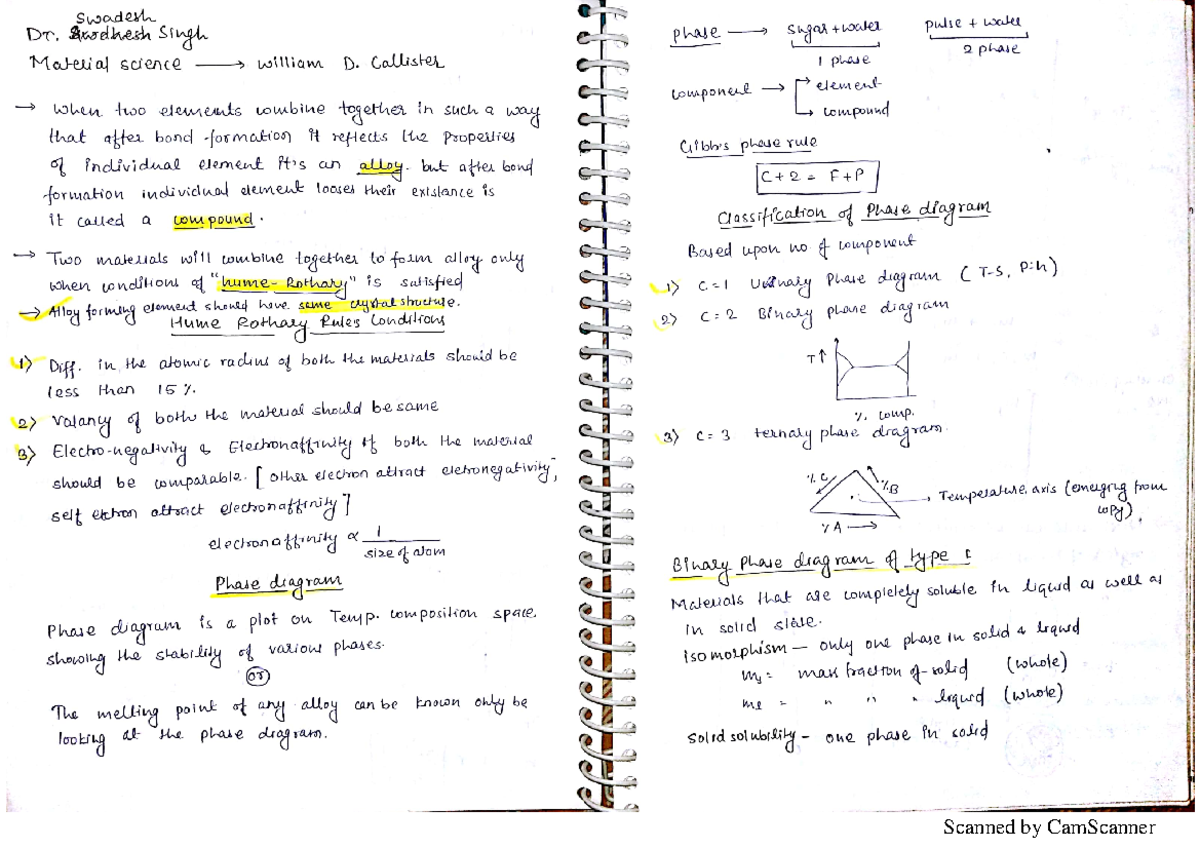 Swadesh
Dr. Singh
Material science → William D. Callister
→ When two elements combine together in such a way
that after bond formation it reflects the properties
of individual element it's an alloy. but after bond
formation individual element looses their existance is
it called a compound.
→ Two materials will combine together to form alloy only
when conditions of "hume-Rothary" is satisfied
→ Alloy forming element should have same crystal structure.
Hume Rothary Rules Conditions
1) Diff. in the atomic radius of both the materials should be
less than 15 %.
2) Valancy of both the material should be same
3) Electro-negativity & Electronaffinity of both the material
should be comparable. [other electron attract eletronegativity,
self electron attract electronaffinity]
electronaffinity ∝ 1
size of atom
Phase diagram
Phase diagram is a plot on Temp. composition space
showing the stability of various phases.
or
The melting point of any alloy can be known only be
looking at the phase diagram.
phase → sugar + water pulse + water
1 phase 2 phase
component → element
→ compound
Gibb's phase rule
C + 2 = F + P
Classification of Phase diagram
Based upon no of component
1) C = 1 Phase diagram (T-S, P-h)
2) C = 2 Binary phase diagram
T↑
% comp.
3) C = 3 ternary phase diagram.
% C
% B
→ Temperature axis (emerging from
copy).
% A →
Binary Phase diagram of type I
Materials that are completely soluble in liquid as well as
in solid state.
isomorphism – only one phase in solid & liquid
ms = mass fraction of solid (whole)
me = " " " liquid (whole)
Solid solubility – one phase in solid
Scanned by CamScanner